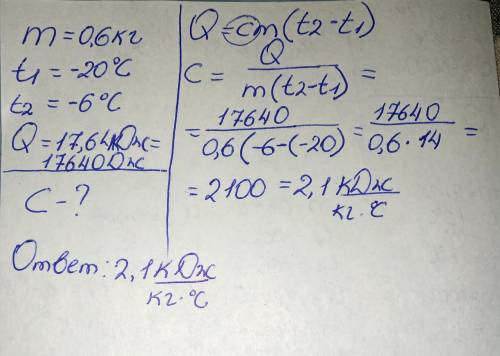 m = 0,6 кг
t1 = -20°C
t2 = -6°C
Q = 17,64кДж =
17640 Дж
C - ?
Q = cm(t2-t1)
C = Q / m(t2-t1) =
= 17640 / 0,6(-6-(-20) = 17640 / 0,6·14 =
= 2100 = 2,1 кДж / кг·°C
Ответ: 2,1 кДж / кг·°C